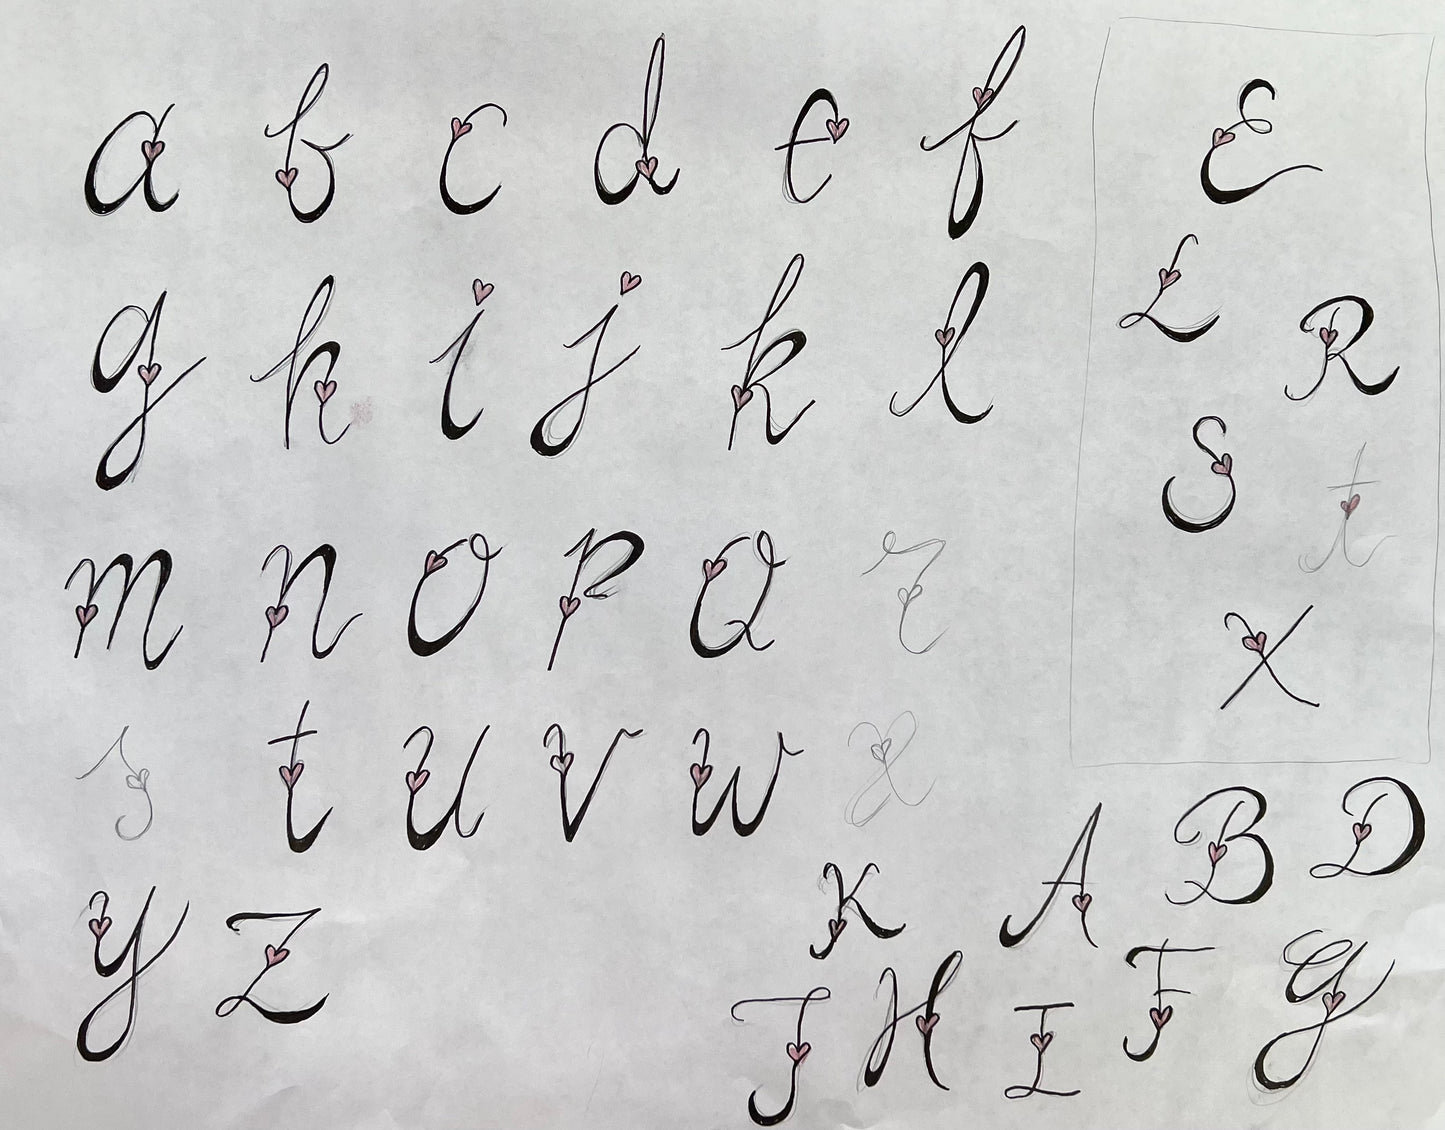 a b c d e f
g h i j k l
m n o p Q r
s t u v w x
y z
E
L R
S t
X
A B D
K F G
J H I